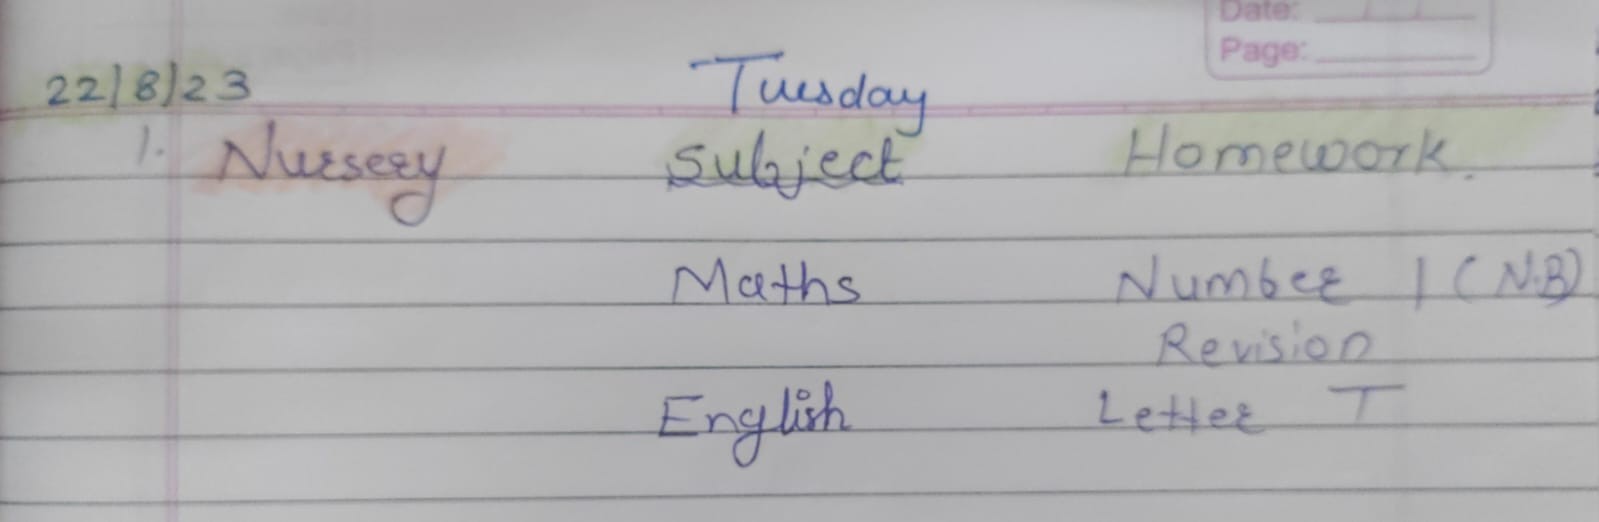 Date:
Page:
22/8/23 Tuesday
1. Nursery Subject Homework.
Maths Number 1 (N.B)
Revision
English Letter T